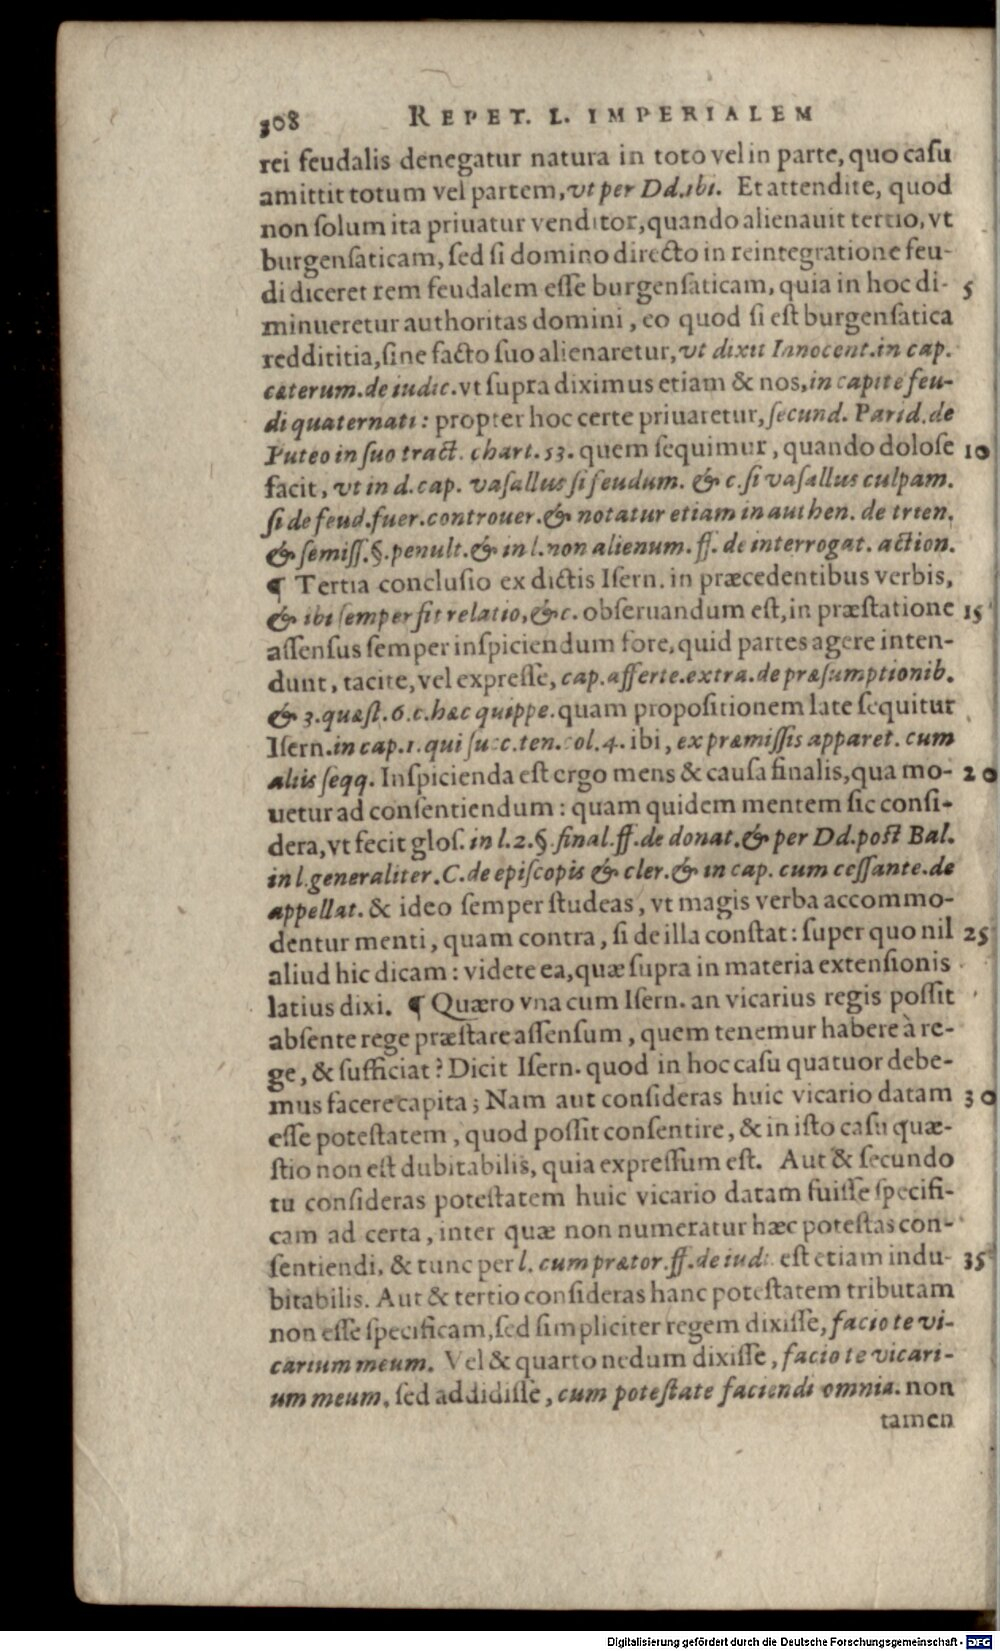 308 REPET. L. IMPERIALEM
rei feudalis denegatur natura in toto vel in parte, quo casu
amittit totum vel partem, vt per Dd. ibi. Et attendite, quod
non solum ita priuatur venditor, quando alienauit tertio, vt
burgensaticam, sed si domino directo in reintegratione feu-
di diceret rem feudalem esse burgensaticam, quia in hoc di- 5
minueretur authoritas domini, eo quod si est burgensatica
reddititia, sine facto suo alienaretur, vt dixit Innocent. in cap.
cæterum. de iudic. vt supra diximus etiam & nos, in capite feu-
di quaternati: propter hoc certe priuaretur, secund. Parid. de
Puteo in suo tract. chart. 53. quem sequimur, quando dolose 10
facit, vt in d. cap. vasallus si feudum. & c. si vasallus culpam.
si de feud. fuer. controuer. & notatur etiam in authen. de trien.
& semiss. §. penult. & in l. non alienum. ff. de interrogat. action.
¶ Tertia conclusio ex dictis Isern. in præcedentibus verbis,
& ibi semper fit relatio, &c. obseruandum est, in præstatione 15
assensus semper inspiciendum fore, quid partes agere inten-
dunt, tacite, vel expresse, cap. afferte. extra. de præsumptionib.
& 3. quæst. 6. c. hæc quippe. quam propositionem late sequitur
Isern. in cap. 1. qui succ. ten. col. 4. ibi, ex præmissis apparet. cum
aliis seqq. Inspicienda est ergo mens & causa finalis, qua mo- 20
uetur ad consentiendum: quam quidem mentem sic consi-
dera, vt fecit glos. in l. 2. §. final. ff. de donat. & per Dd. post Bal.
in l. generaliter. C. de episcopis & cler. & in cap. cum cessante. de
appellat. & ideo semper studeas, vt magis verba accommo-
dentur menti, quam contra, si de illa constat: super quo nil 25
aliud hic dicam: videte ea, quæ supra in materia extensionis
latius dixi. ¶ Quæro vna cum Isern. an vicarius regis possit
absente rege præstare assensum, quem tenemur habere à re-
ge, & sufficiat? Dicit Isern. quod in hoc casu quatuor debe-
mus facere capita; Nam aut consideras huic vicario datam 30
esse potestatem, quod possit consentire, & in isto casu quæ-
stio non est dubitabilis, quia expressum est. Aut & secundo
tu consideras potestatem huic vicario datam fuisse specifi-
cam ad certa, inter quæ non numeratur hæc potestas con-
sentiendi, & tunc per l. cum prætor. ff. de iudi. est etiam indu- 35
bitabilis. Aut & tertio consideras hanc potestatem tributam
non esse specificam, sed simpliciter regem dixisse, facio te vi-
carium meum. Vel & quarto nedum dixisse, facio te vicari-
um meum, sed addidisse, cum potestate faciendi omnia. non
tamen
Digitalisierung gefördert durch die Deutsche Forschungsgemeinschaft - DFG